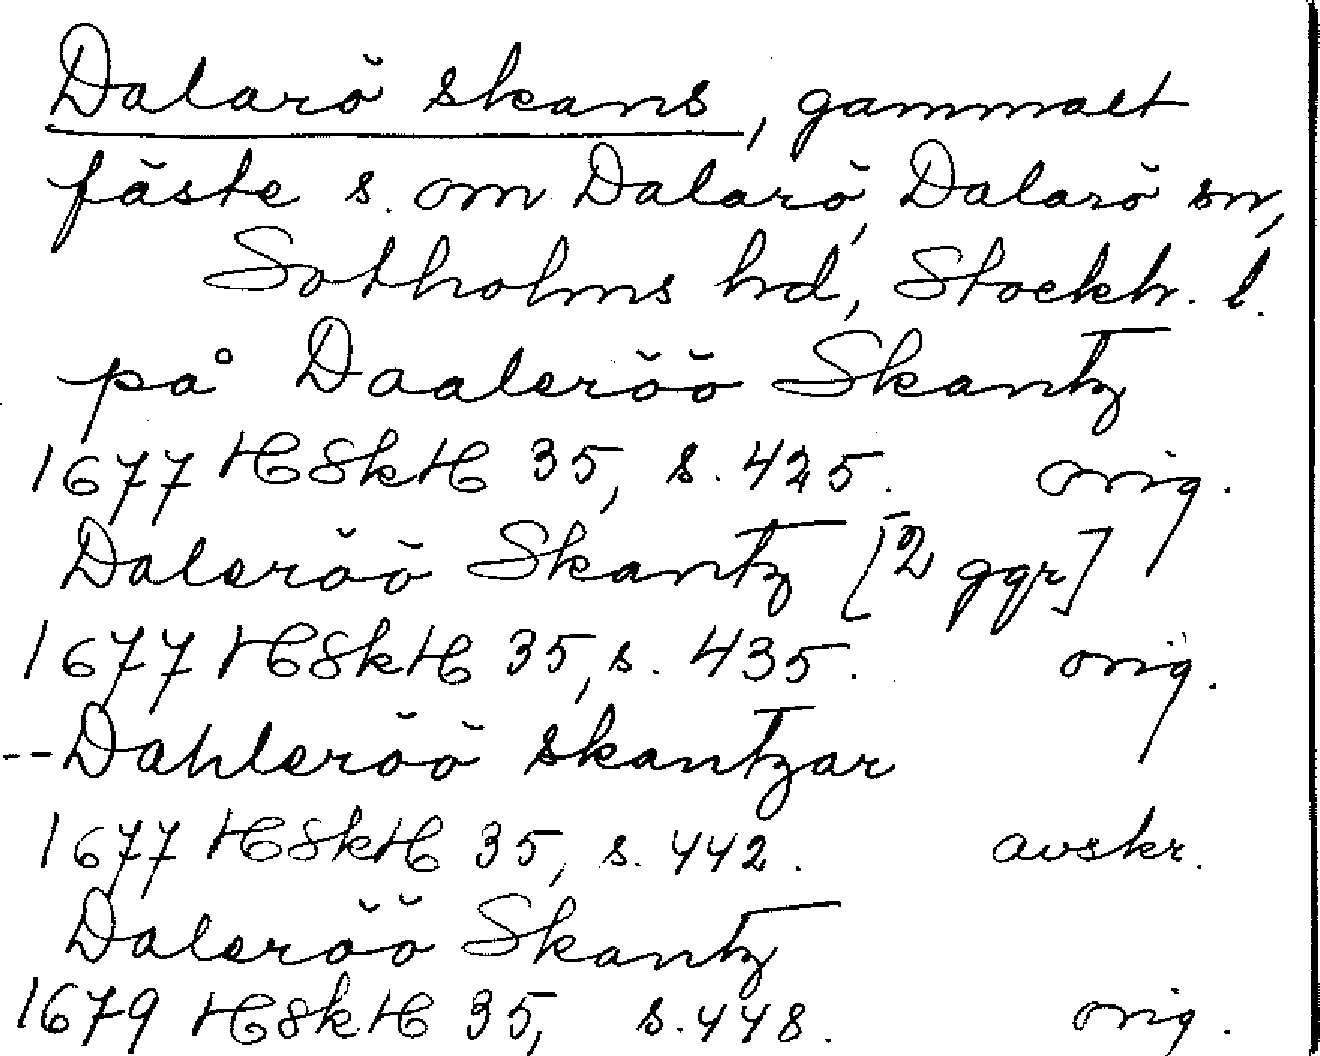 Dalarö skans, gammalt
fäste s. om Dalarö, Dalarö sn,
Sotholms hd, Stockh. l.
på Daaleröö Skantz
1677 HSkH 35, s. 425. orig.
Daleröö Skantz [2 ggr]
1677 HSkH 35, s. 435. orig.
-- Dahleröö skantzar
1677 HSkH 35, s. 442. avskr.
Daleröö Skantz
1679 HSkH 35, s. 448. orig.